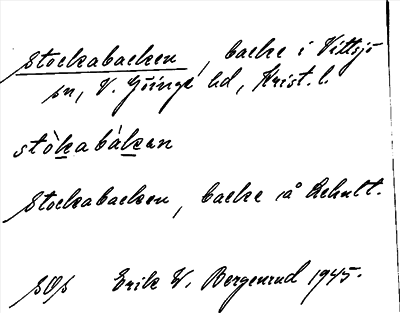 Stockabacken, backe i Vittsjö
sn, V. Göinge hd, Krist. l.
stòkabákan
Stockabacken, backe å Rehult.
Erik W. Bergenrud 1945.